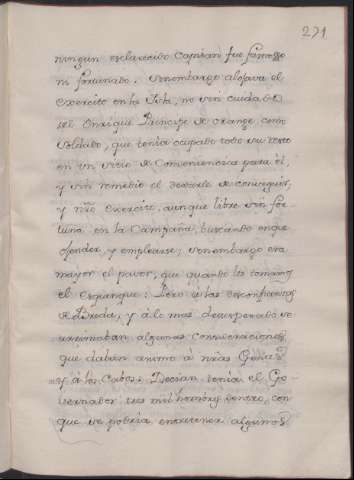 271
ningun esclarecido Capitan fue famosso
ni fortunado. Sinembargo alojava el
exercito en la Isla, no sin cuidado
del Enrique Principe de orange, como
soldado, que tenia ocupado todo su
en un sitio de Conveniencia para el,
y sin remedio el de conseguir,
y nro exercito, aunque libre sin for-
tuna en la Campaña, buscando en que
ofender, y emplearse; sinembargo era
mayor el pavor, que quando les tomamos
el esguazo: Pero si las desconfianzas
de Breda, y á lo mas desesperado se
arrimaban algunas conversaciones,
que daban animo á nras Gentes
y á los Cabos. Decian, tenia el Go-
vernador tres mil hombres dentro, con
que se podria entretener algunos